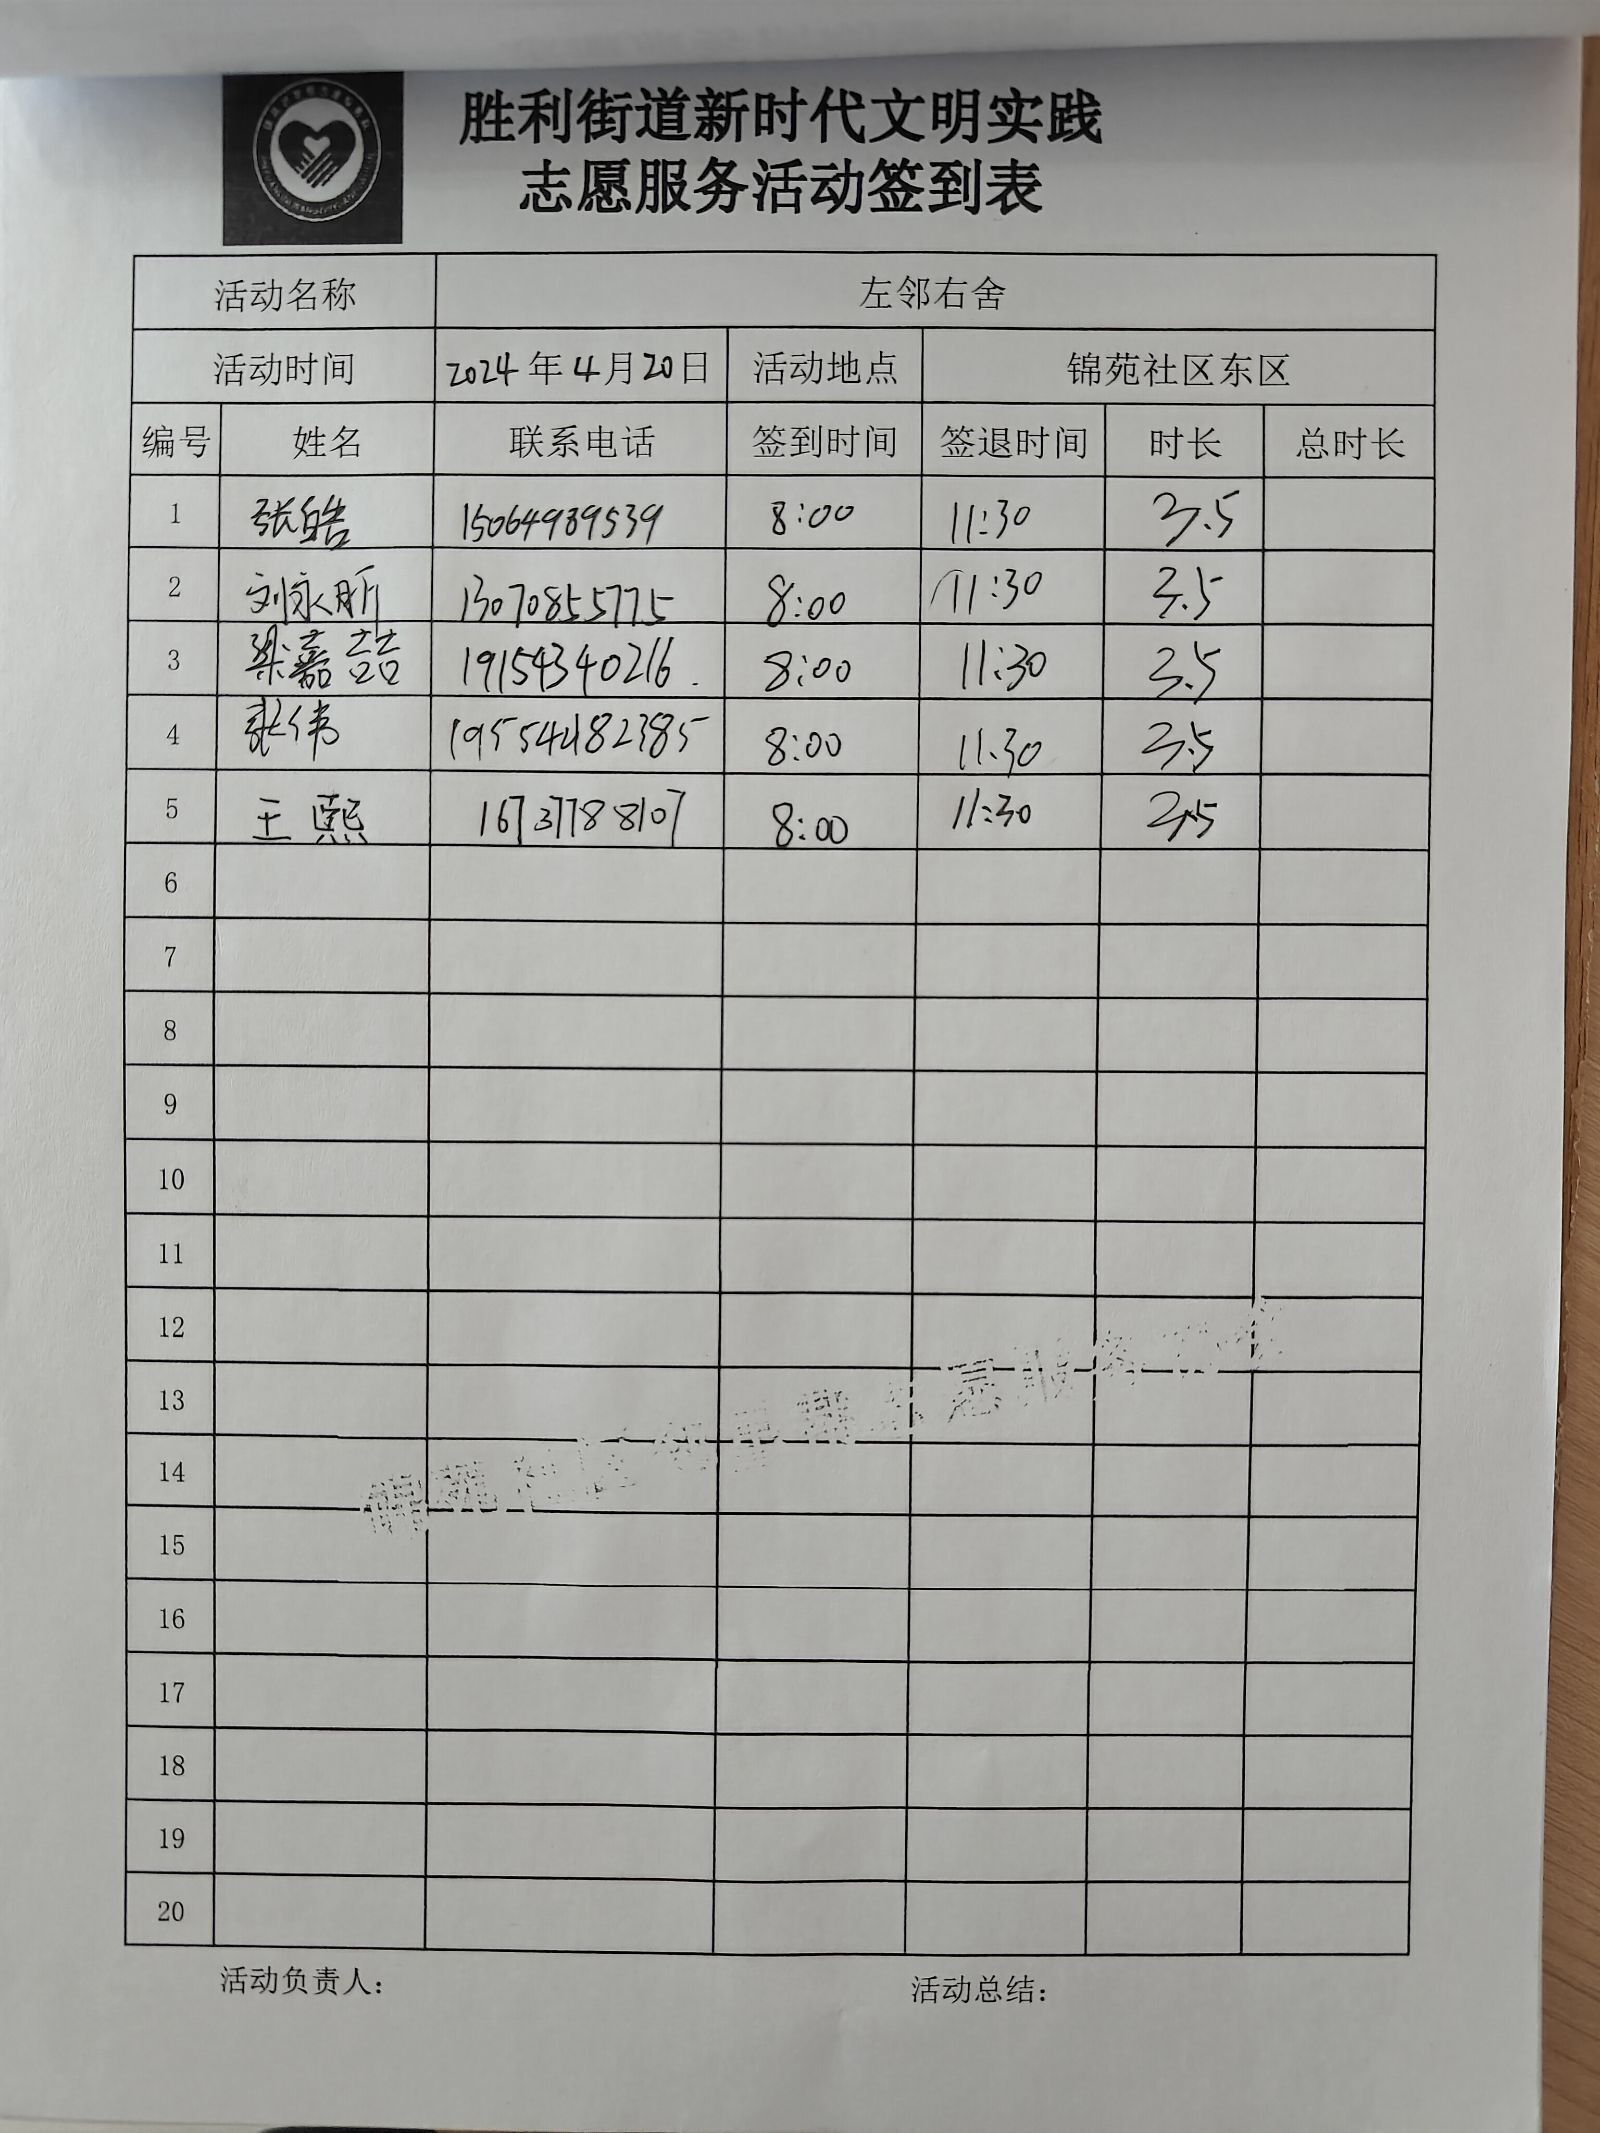 胜利街道新时代文明实践
志愿服务活动签到表
活动名称 左邻右舍
活动时间 2024年4月20日 活动地点 锦苑社区东区
编号 姓名 联系电话 签到时间 签退时间 时长 总时长
1 张皓 15064989539 8:00 11:30 3.5
2 刘永昕 13070855775 8:00 11:30 3.5
3 梁嘉喆 19154340216. 8:00 11:30 3.5
4 张伟 8:00 11:30 3.5
5 王熙 16737788107 8:00 11:30 3.5
6
7
8
9
10
11
12
13
14
15
16
17
18
19
20
活动负责人： 活动总结：